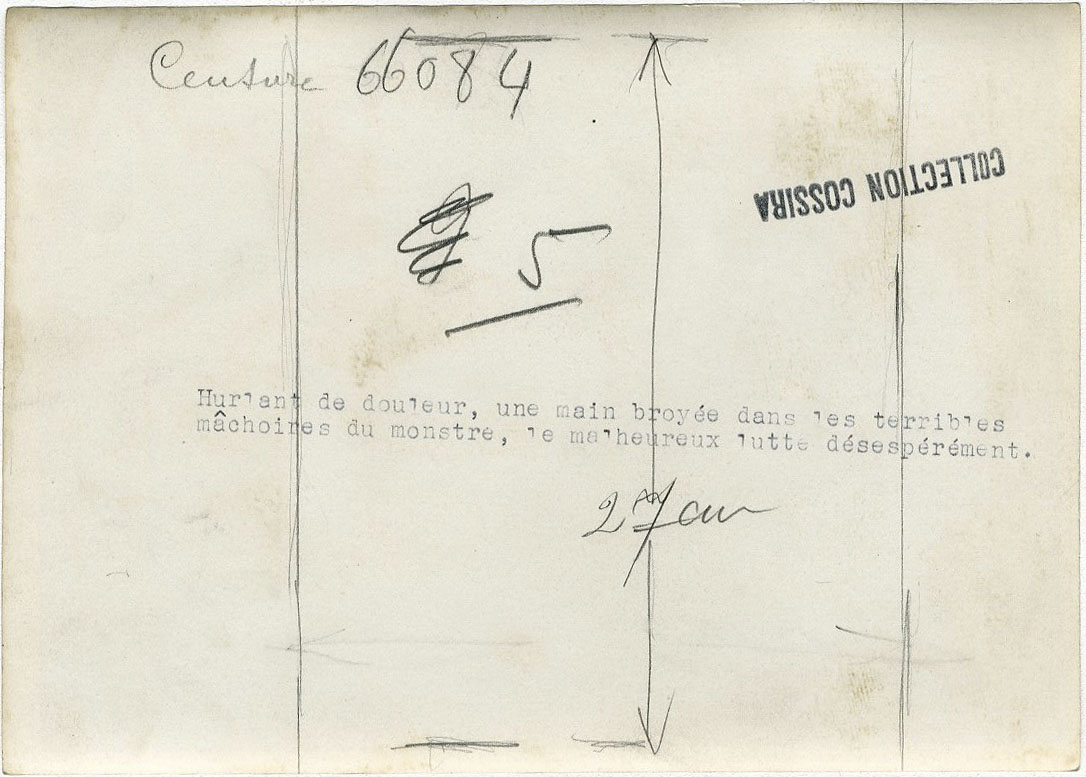 Censure 66084
COLLECTION COSSIRA
5
Hurlant de douleur, une main broyée dans les terribles
mâchoires du monstre, le malheureux lutte désespérément.
27 cm